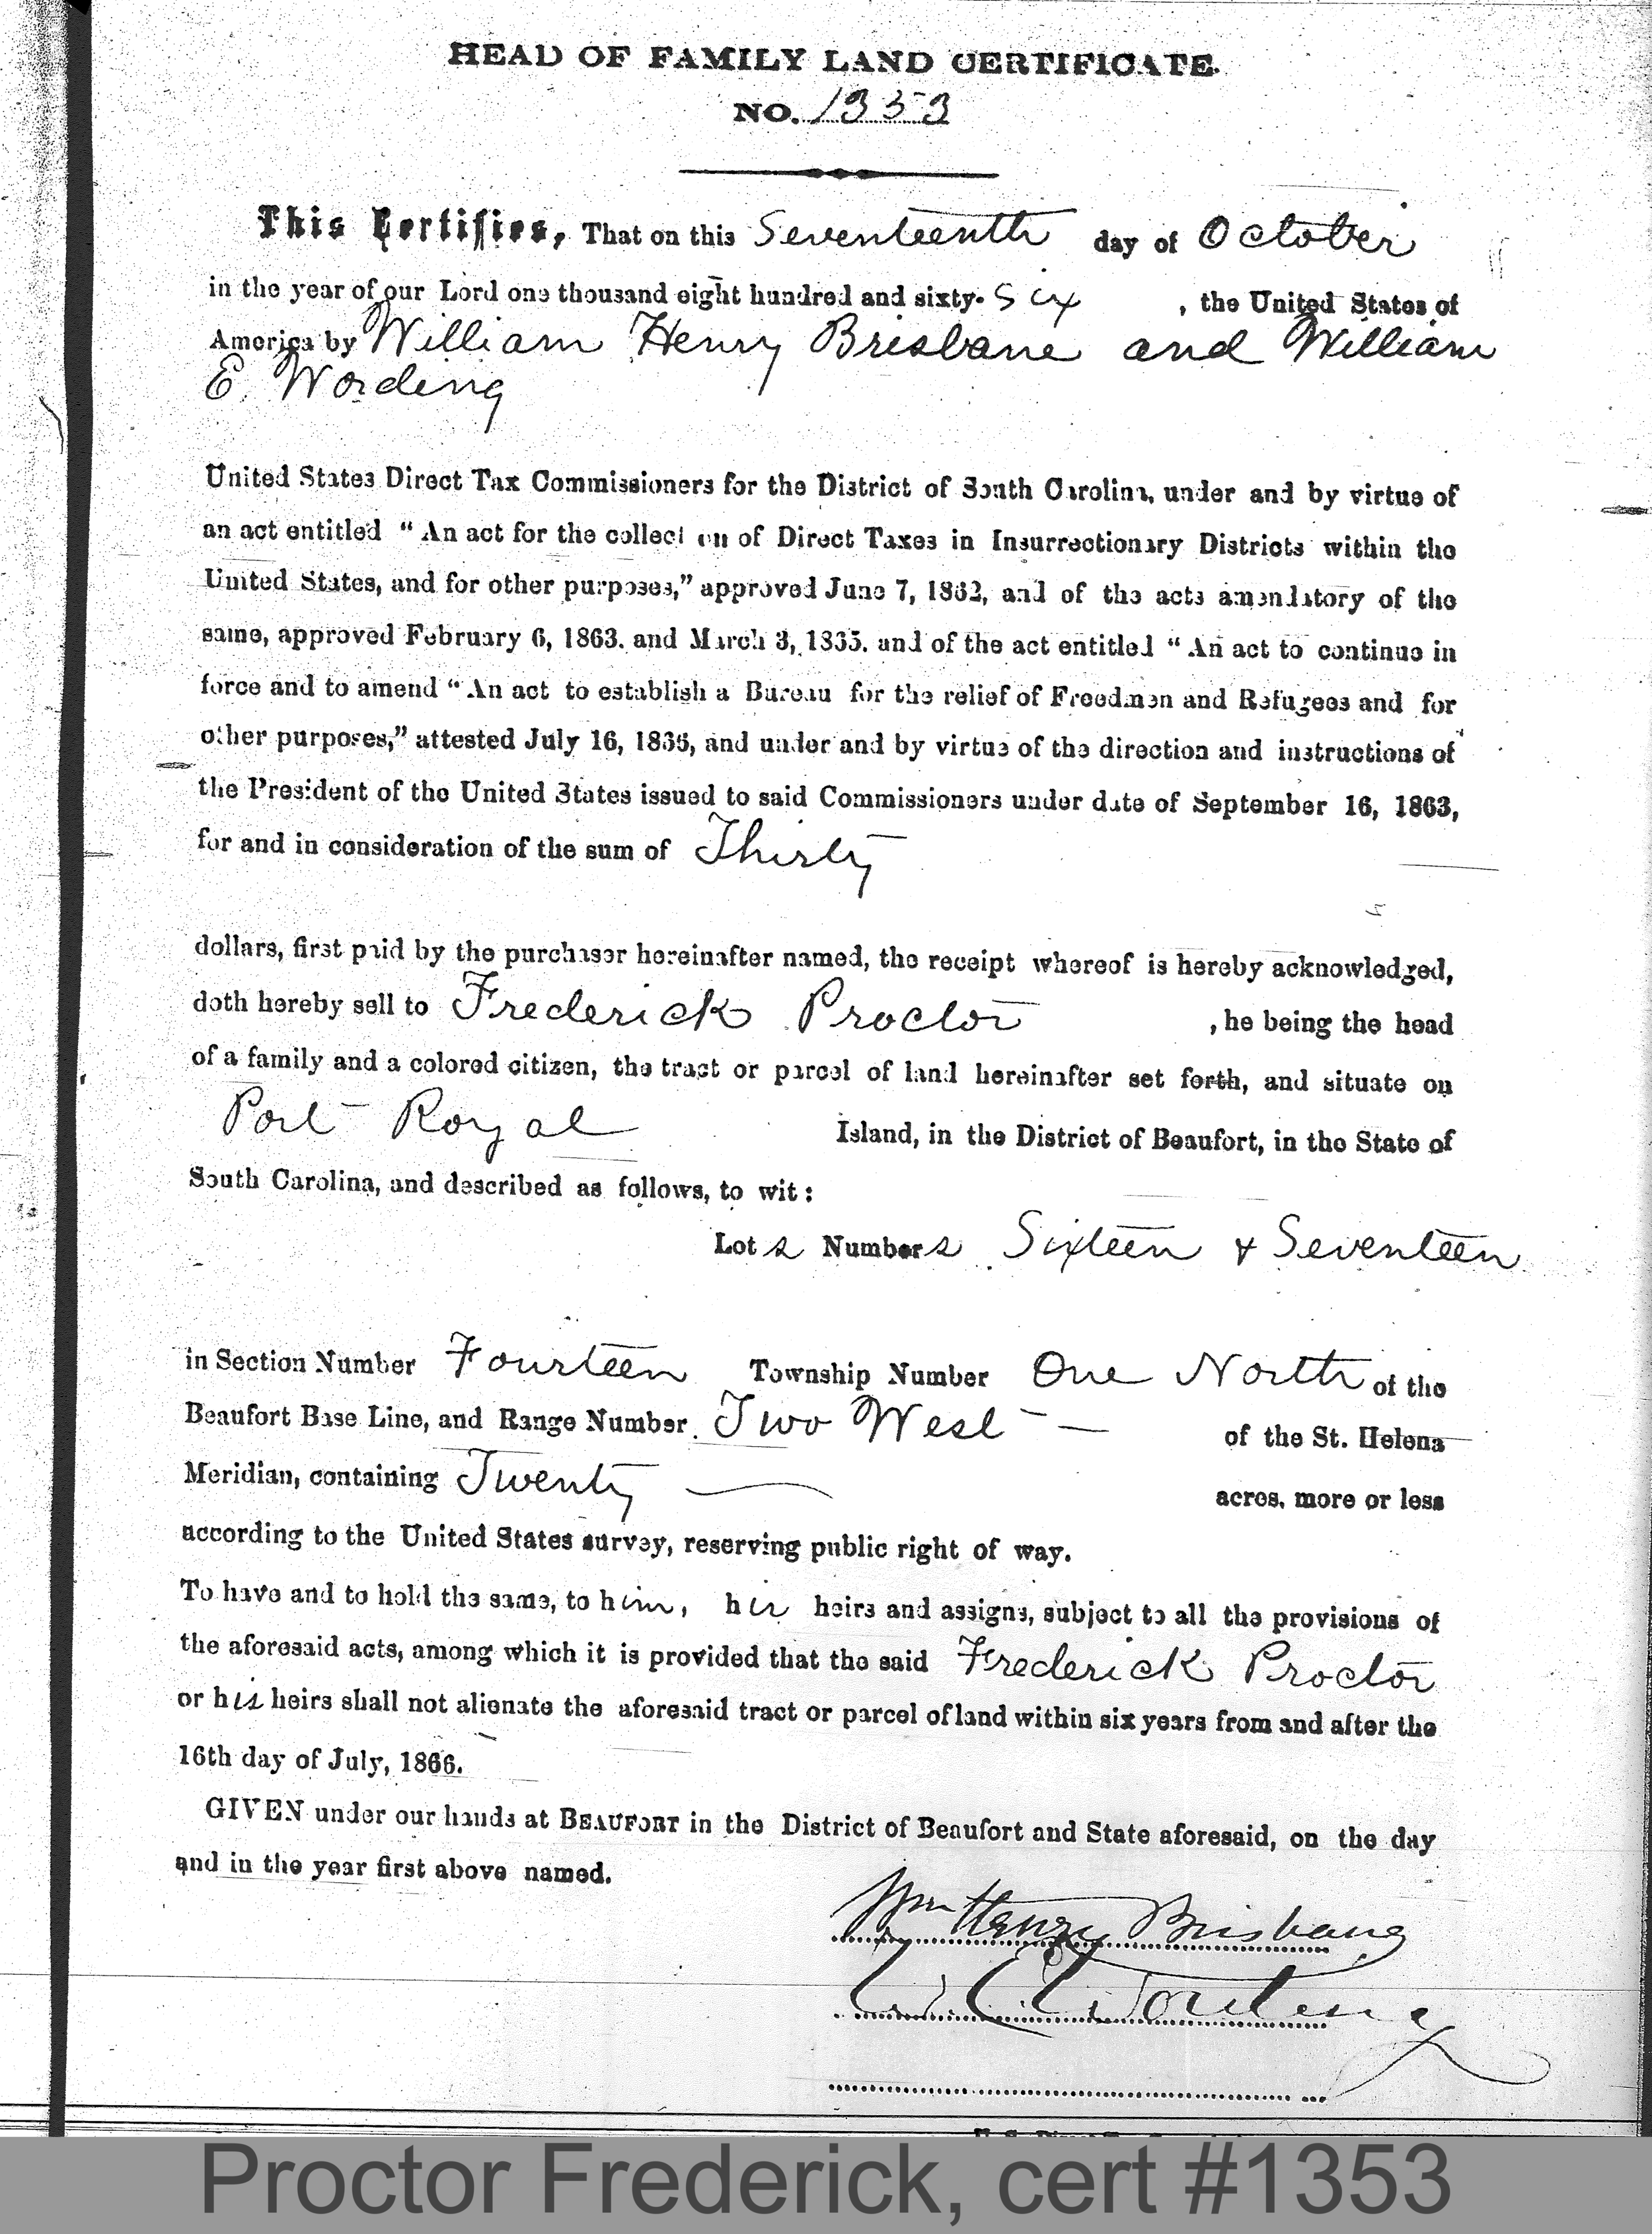 HEAD OF FAMILY LAND CERTIFICATE.
NO. 1353
This Certifies, That on this Seventeenth day of October
in the year of our Lord one thousand eight hundred and sixty-six, the United States of
America by William Henry Brisbane and William
E. Wording
United States Direct Tax Commissioners for the District of South Carolina, under and by virtue of
an act entitled “An act for the collection of Direct Taxes in Insurrectionary Districts within the
United States, and for other purposes,” approved June 7, 1862, and of the acts amendatory of the
same, approved February 6, 1863. and March 3, 1865. and of the act entitled “An act to continue in
force and to amend “An act to establish a Bureau for the relief of Freedmen and Refugees and for
other purposes,” attested July 16, 1866, and under and by virtue of the direction and instructions of
the President of the United States issued to said Commissioners under date of September 16, 1863,
for and in consideration of the sum of Thirty
dollars, first paid by the purchaser hereinafter named, the receipt whereof is hereby acknowledged,
doth hereby sell to Frederick Proctor, he being the head
of a family and a colored citizen, the tract or parcel of land hereinafter set forth, and situate on
Port Royal Island, in the District of Beaufort, in the State of
South Carolina, and described as follows, to wit:
Lots Numbers Sixteen & Seventeen
in Section Number Fourteen Township Number One North of the
Beaufort Base Line, and Range Number Two West — of the St. Helena
Meridian, containing Twenty — acres, more or less
according to the United States survey, reserving public right of way.
To have and to hold the same, to him, his heirs and assigns, subject to all the provisions of
the aforesaid acts, among which it is provided that the said Frederick Proctor
or his heirs shall not alienate the aforesaid tract or parcel of land within six years from and after the
16th day of July, 1866.
GIVEN under our hands at BEAUFORT in the District of Beaufort and State aforesaid, on the day
and in the year first above named.
Wm Henry Brisbane
W. E. Wording
Proctor Frederick, cert #1353